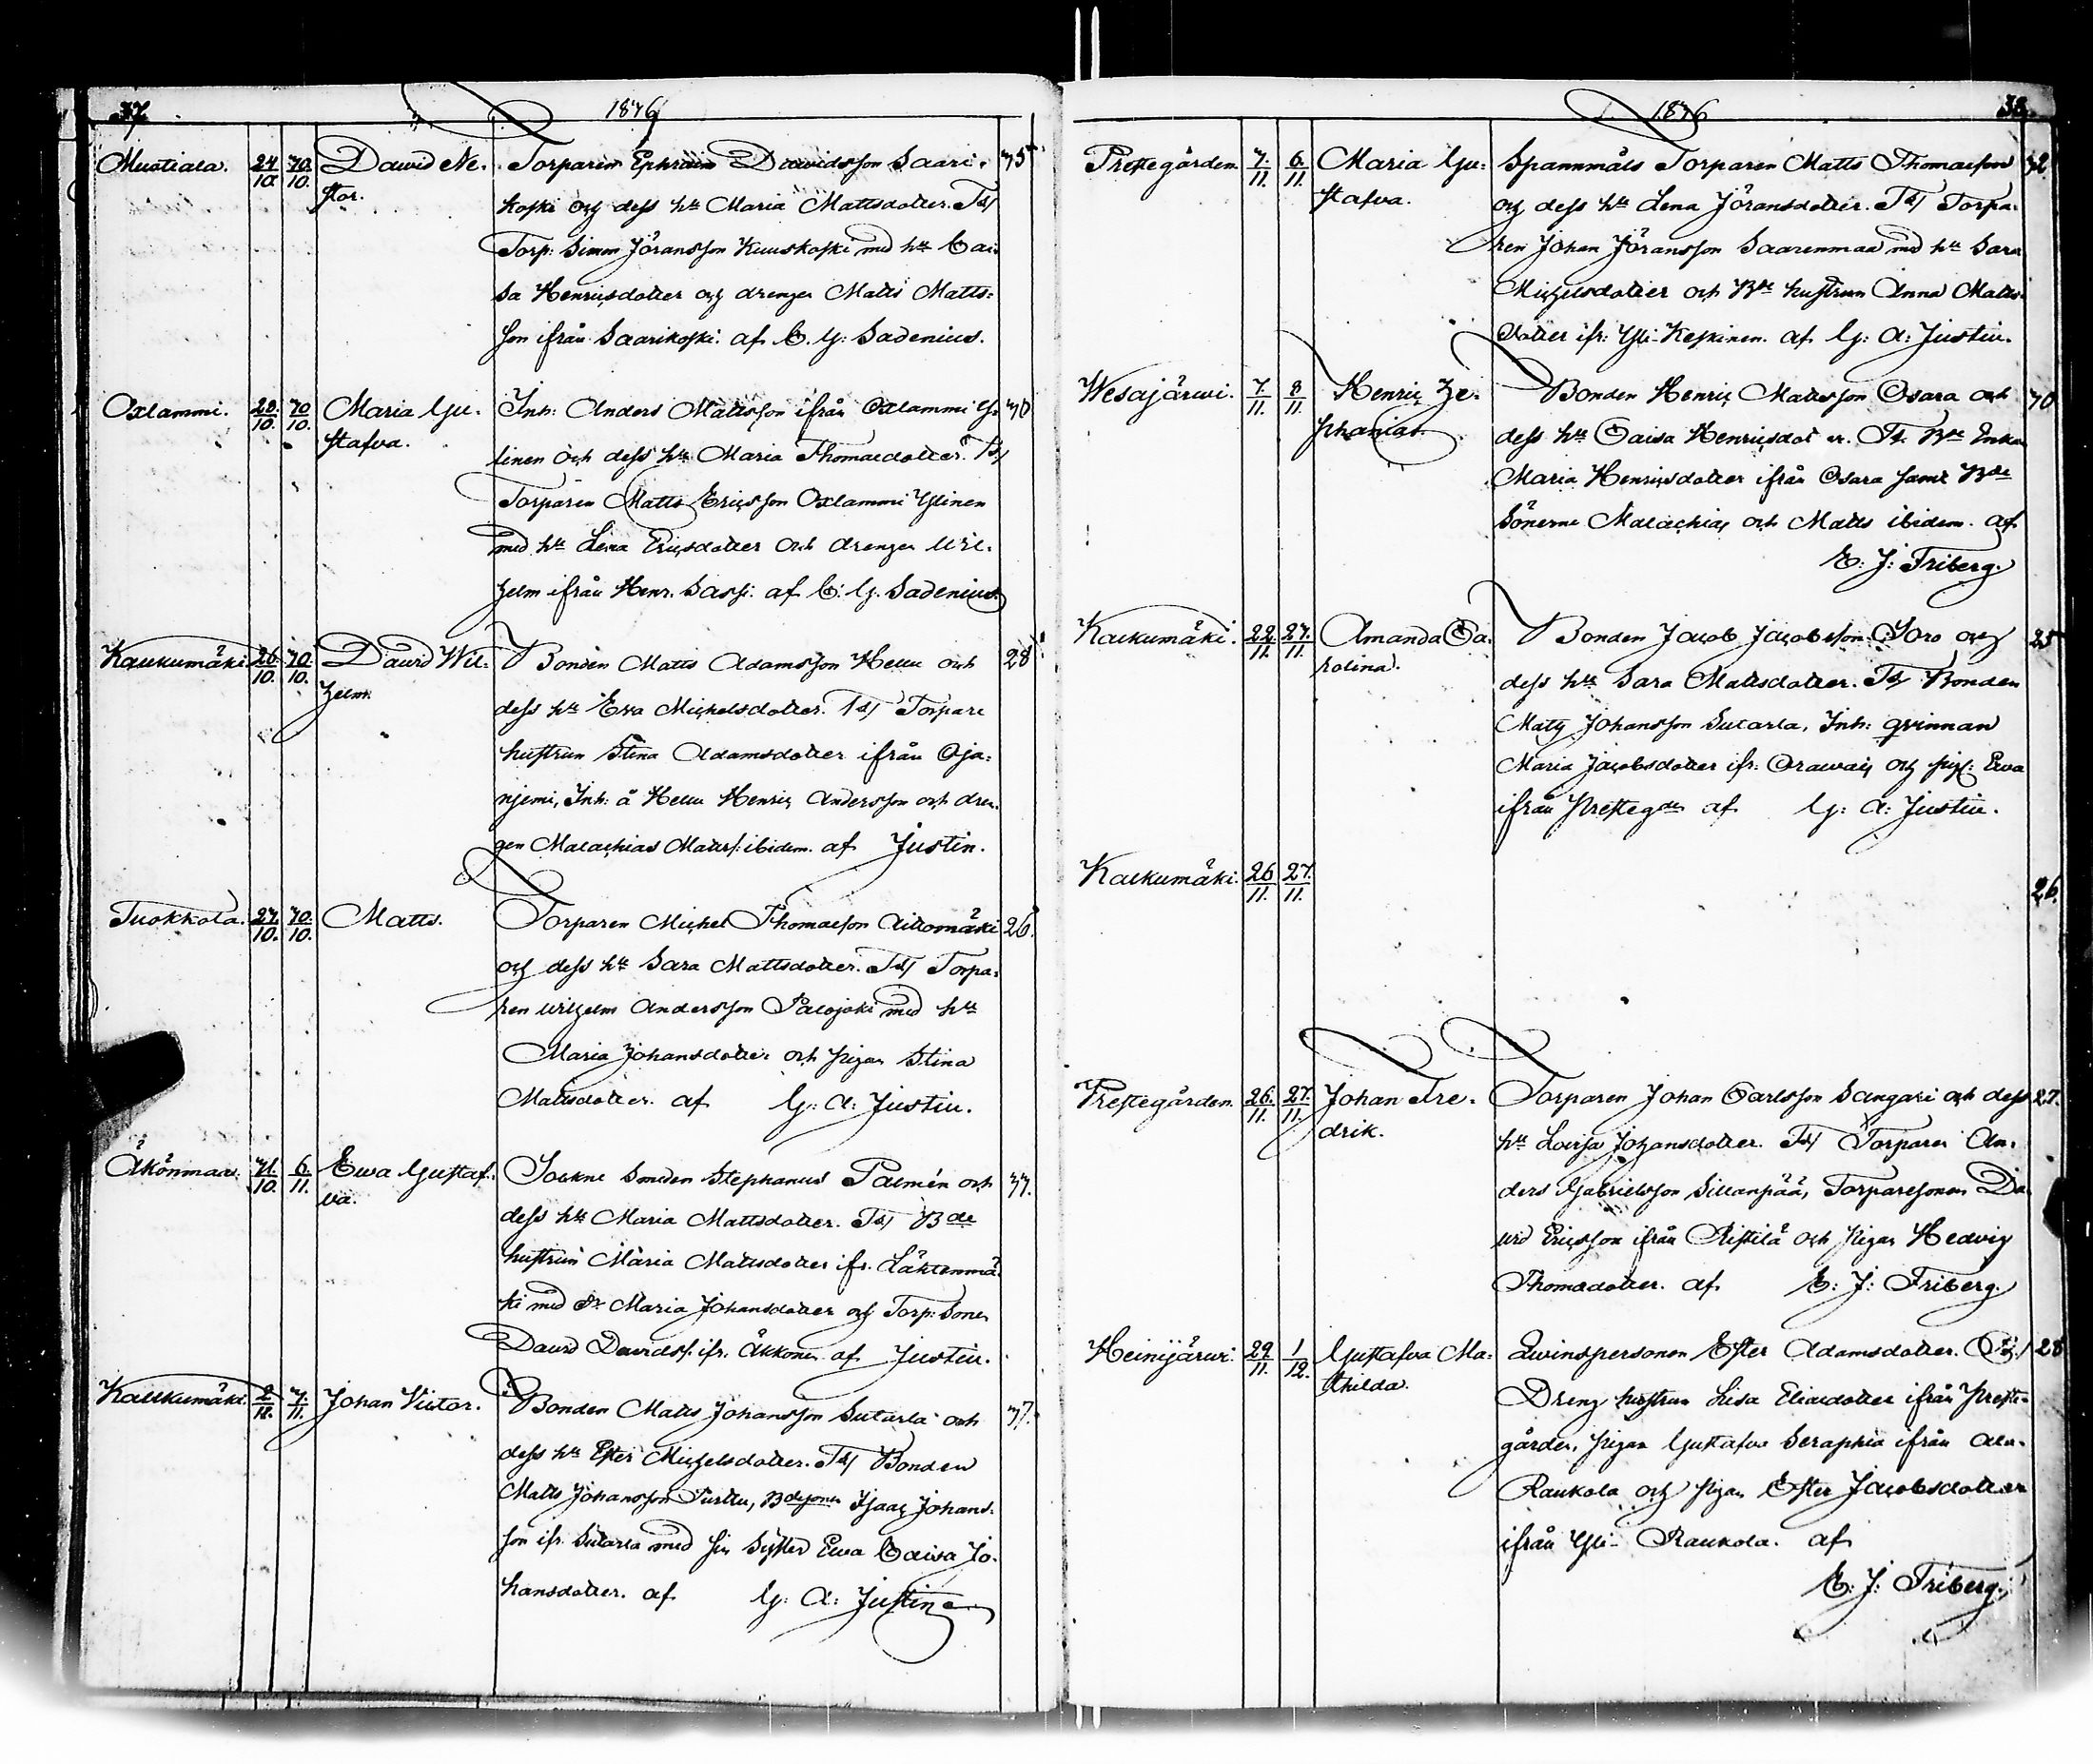 37. 1876
Mustiala. 24/10. 30/10. David Ne- Torparen Ephraim Davidsson Saari- 35.
stor. koski och dess hu Maria Mattsdotter. Td/
Torp: Simon Jöransson Kuuskoski med hu Cai-
sa Henricsdotter och drengen Matts Matts-
son ifrån Saarikoski. af C. G: Sadenius.
Oxlammi. 28/10. 30/10. Maria Gu- Inh: Anders Mattsson ifrån Oxlammi Y- 30
stafva. linen och dess hu Maria Thomasdotter. Td/
Torparen Matts Ericsson Oxlammi Ylinen
med hu Lena Ericsdotter och drengen Wil-
helm ifrån Henr. Sassi. af C: G. Sadenius.
Kaukumäki. 26/10. 30/10. David Wil- Bonden Matts Adamsson Hellu och 28.
helm. dess hu Eva Michelsdotter. Td/ Torpare
hustrun Stina Adamsdotter ifrån Oja-
njemi, Inh: å Hellu Henric Andersson och dren-
gen Malachias Matts/: ibidem. af Justin.
Tuokkola. 27/10. 30/10. Matts. Torparen Michel Thomasson Aittomäki 26.
och dess hu Sara Mattsdotter. Td/ Torpa-
ren Wilhelm Andersson Palojoki med hu
Maria Johansdotter och pigan Stina
Mattsdotter. af G: A: Justin.
Äkönmaa. 31/10. 6/11. Ewa Gustaf- Sockne Smeden Stephanus Palmén och 37.
va. dess hu Maria Mattsdotter. Td/ Bde
hustrun Maria Mattsdotter ifr. Läktenmä-
ki med Dr Maria Johansdotter och Torp: Sonen
David Davids/: ifr. Äkkönen af Justin.
Kaukumäki. 2/11. 7/11. Johan Victor. Bonden Matts Johansson Sutarla och 37.
dess hu Ester Michelsdotter. Td/ Bonden
Matts Johansson Turttu, Bdesonen Isaac Johans-
son ifr. Sutarla med sin Syster Ewa Caisa Jo-
hansdotter. af G: A: Justin
1876 38.
Prestegården. 7/11. 6/11. Maria Gu- Spannmåls Torparen Matts Thomasson 32.
stafva. och dess hu Lena Jöransdotter. Td/ Torpa-
ren Johan Jöransson Saarenmaa med hu Sara
Michelsdotter och Bde hustrun Anna Matts-
dotter ifr: Yli-Keskinen. af G: A: Justin.
Wesajärwi. 7/11. 8/11 Henric Ze- Bonden Henric Mattsson Osara och 30
phanias. dess hu Caisa Henricsdotter. Td. Bde Enkan
Maria Henricsdotter ifrån Osara samt Bde
Sönerne Malachias och Matts ibidem. af
E: J: Friberg.
Kaukumäki. 22/11. 27/11. Amanda Ca- Bonden Jacob Jacobsson Soro och 25
rolina. dess hu Sara Mattsdotter. Td/ Bonden
Matts Johansson Sutarla, Inh: qvinnan
Maria Jacobsdotter ifr: Orawais och pig: Ewa
ifrån Presteg:den af G: A: Justin.
Kaukumäki. 26/11. 27/11. 26.
Prestegården. 26/11. 27/11. Johan Fre- Torparen Johan Carlsson Sangari och dess 27.
drik. hu Lovisa Johansdotter. Td/ Torparen An-
ders Gabrielsson Sillanpää, Torparesonen Da-
vid Ericsson ifrån Ristilä och pigan Hedvig
Thomasdotter. af E: J: Friberg.
Heinijärwi. 29/11. 1/12. Gustafva Ma- Qwinspersonen Ester Adamsdotter. 28
thilda. Dreng hustrun Lisa Eliaedotter ifrån Preste-
gården, pigan Gustafva Seraphia ifrån Ala-
Raukola och pigan Ester Jacobsdotter
ifrån Yli-Raukola. af
E: J: Friberg.